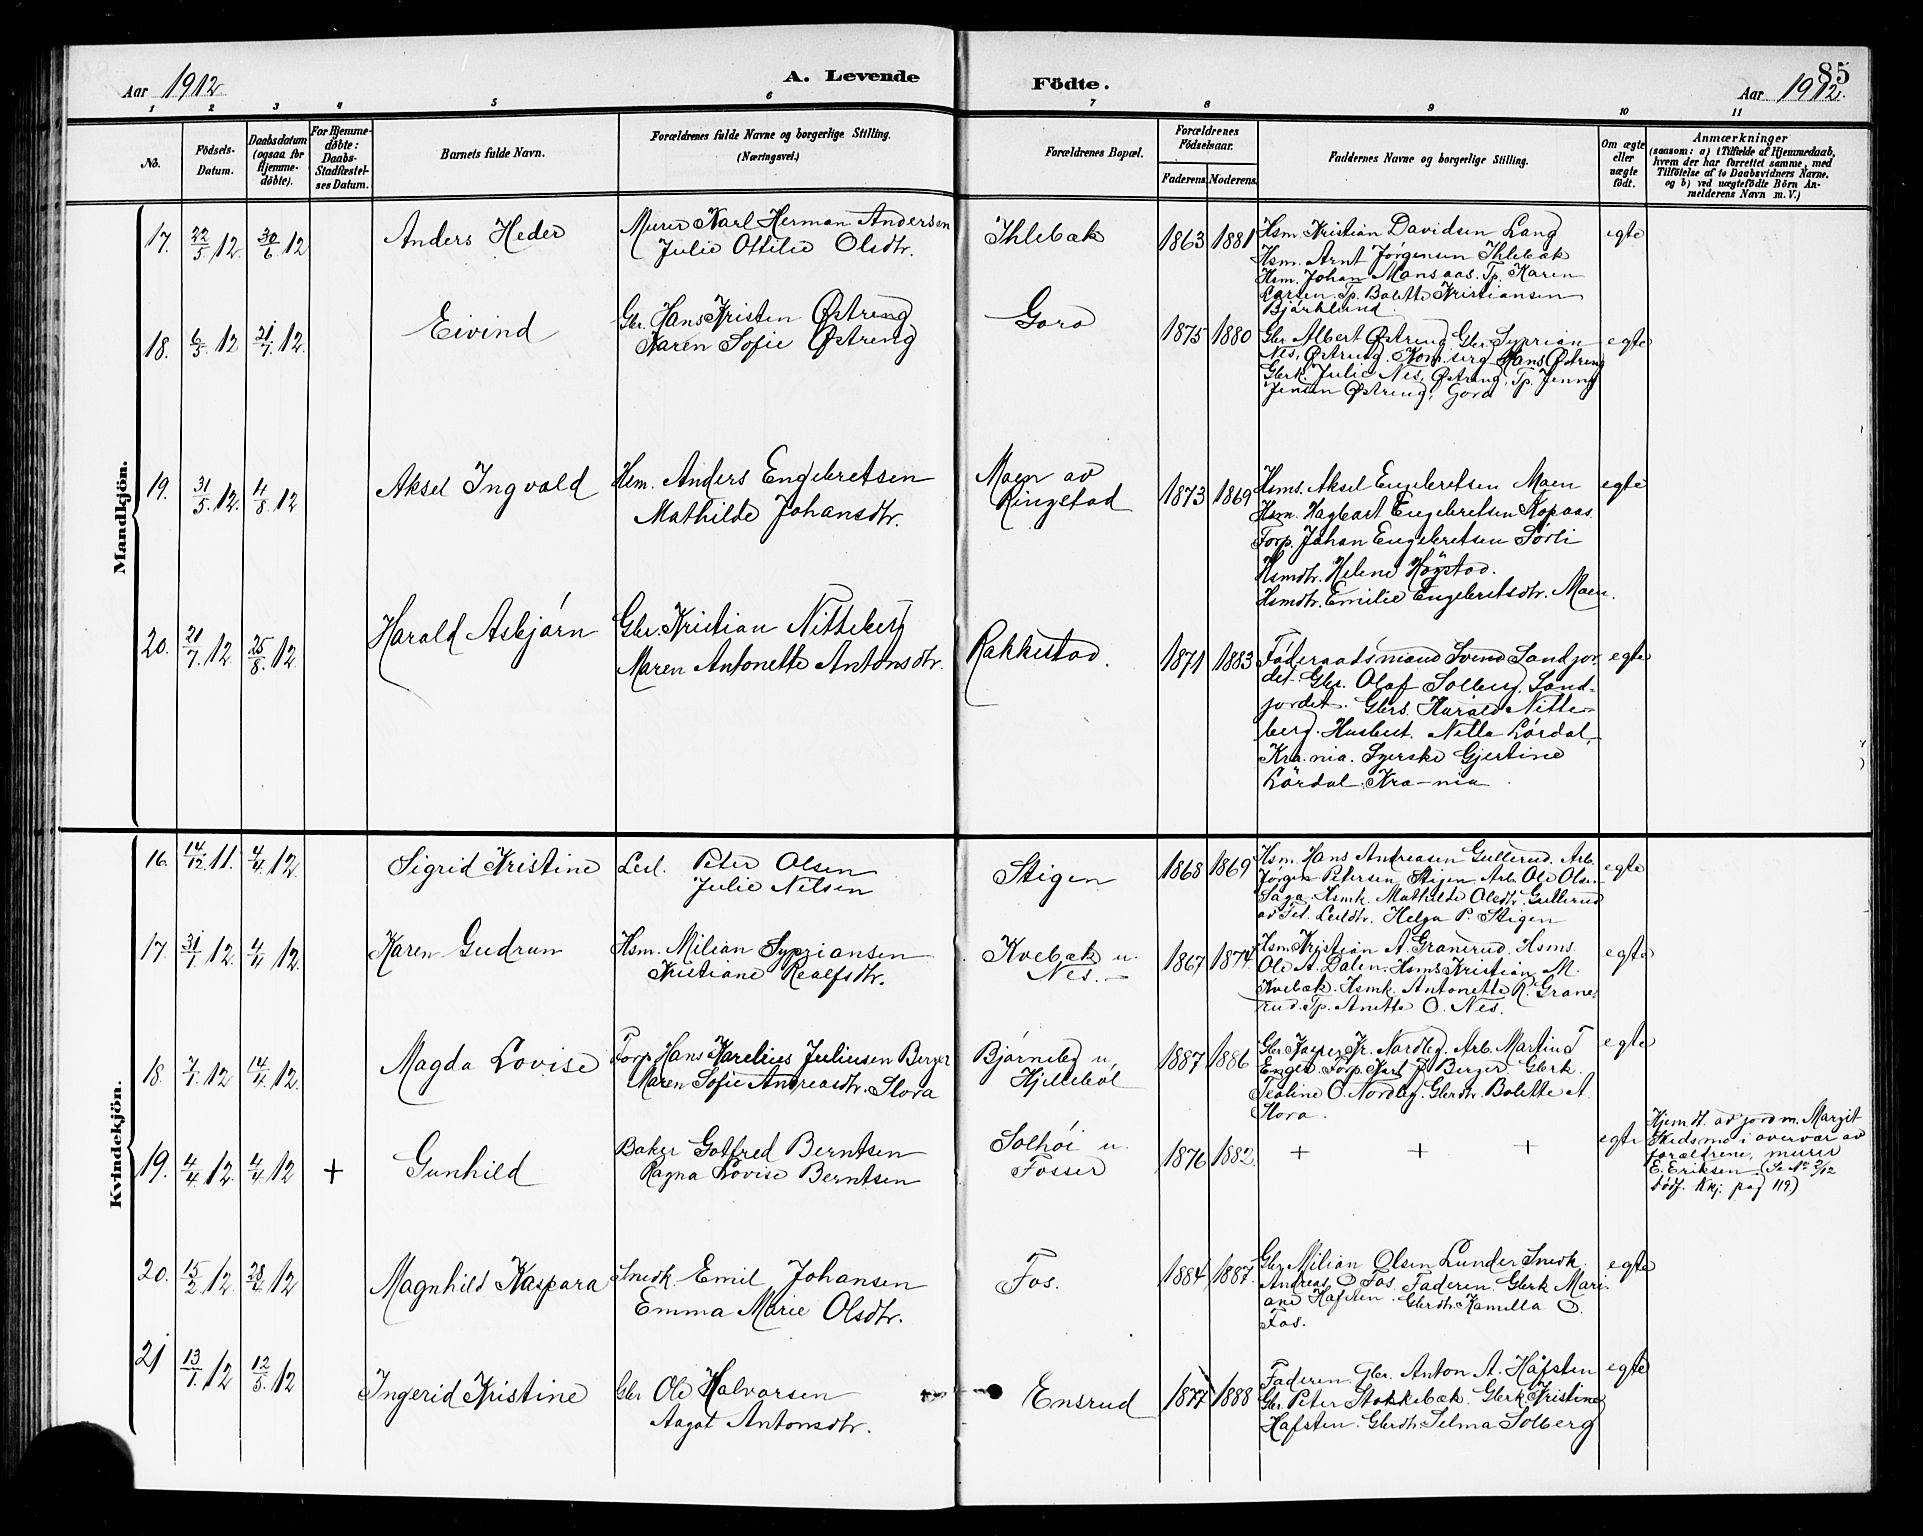 85
Aar 1912. A. Levende Fôdte. Aar 1912.
1 2 3 4 5 6 7 8 9 10 11
No. Fôdsels-Datum. Daabsdatum (ogsaa for Hjemme-dôbte). For Hjemme-dôbte: Daabs-Stadfæstel-ses Datum. Barnets fulde Navn. Forældrenes fulde Navne og borgerlige Stilling. (Næringsvei.) Forældrenes Bopæl. Forældrenes Fôdselsaar. Faderens. Moderens. Faddernes Navne og borgerlige Stilling. Om ægte eller uægte fôdt. Anmærkninger (saasom: a) i Tilfælde af Hjemmedaab, hvem der har forrettet samme, med Tilfôielse af to Daabsvidners Navne. og b) ved uægtefôdte Bôrn An-melderens Navn m. V.)
Mandkjôn.
17. 22/5 12. 30/6 12 Anders Heder Murer Karl Herman Andersen
Julie Ottilie Olsdtr. Ihlebæk 1863 1881 Hsm. Kristian Davidsen Lang egte
Hsm. Arnt Jørgensen Ihlebæk
Hsm. Johan Mansaas. Tp. Karen
Larsen. Tp. Bolette Kristiansen
Bjørklund.
18. 6/5 12 21/7 12. Eivind Gbr. Hans Kristen Østreng
Karen Sofie Østreng Goro 1875 1880 Gbr. Albert Østreng Gbr. Syprian egte
Nes, Østreng. Kom. serg. Hans Østreng
Gbrk. Julie Nes, Østreng, Tp. Jenny
Jensen Østreng, Goro
19. 31/5 12. 4/8 12 Aksel Ingvald Hsm. Anders Engebretsen
Mathilde Johansdtr. Maen av
Ringstad 1873 1869 Hsms. Aksel Engebretsen Maen egte
Hsm. Hagbart Engebretsen Kopaas
Forp. Johan Engebretsen Sørli
Hsmdtr. Helene Høgstad.
Hsmdtr. Emilie Engebretsdtr. Maen.
20. 21/7 12 25/8 12. Harald Asbjørn Gbr. Kristian Nitteberg
Maren Antonette Antonsdtr. Rakkestad. 1871 1883 Føderaadsmand Svend Sandjor- egte
det. Gbr. Olaf Solberg. Sand-
jordet. Gbrs. Harald Nitte-
berg. Husbest. Nilla Lørdal,
Kra.nia. Syerske Gjertine
Lørdal, Kra-nia.
Kvindekjôn.
16. 14/12 11. 4/4 12. Sigrid Kristine Leil. Peter Olsen
Julie Nilsen Stigen 1868 1869 Hsm. Hans Andreasen Gullerud. Arb. egte
Jørgen Petersen Stigen Arb. Ole Olsen
Saga. Hsmk. Mathilde Olsdtr. Gullerud
Leildtr. Helga P. Stigen
17. 31/1 12. 4/4 12. Karen Gudrun Hsm. Milian Syprians en
Kristiane Realfsdtr. Kvebæk u.
Nes. — 1867 1874 Hsm. Kristian A. Granerud. Hsms. egte
Ole A. Dalen. Hsms Kristian M.
Kvebæk. Hsmk. Antonette R. Grane-
rud. Tp. Anette O. Nes.
18. 7/1 12 14/4 12. Magda Lovise Forp. Hans Karelius Juliusen Berger
Maren Sofie Andreasdtr. Slora Bjørneby u.
Hjellebøl 1887 1886 Gbr. Kasper Kr. Nordby. Arb. Martin T egte
Enger. Forp. Karl J. Berger. Gbrk.
Tealine O. Nordby. Gbrdtr. Bolette A
Slora.
19. 4/4 12. 4/4 12 + Gunhild Baker Gotfred Berntsen
Ragna Lovise Berntsen Solhøi u.
Fosser 1876 1882. + + + egte Hjemdt. av jordm. Margit
Skedsmo i overvær av
forældrene, murer
E. Eriksen (Se No 2/12
dødf. Kkj. pag 119)
20. 15/2 12. 28/4 12 Magnhild Kaspara Snedk. Emil Johansen
Emma Marie Olsdtr. Fos. 1884 1887. Gbr. Milian Olsen Lunder Snedk. egte
Andreas O Fos. Faderen. Gbrk Mari-
ane Hafsten. Gbrdtr. Kamilla O.
Fos.
21 13/1 12 12/5 12 Ingerid Kristine Gbr Ole Halvorsen
Aagot Antonsdtr. Ensrud 1877 1888 Faderen. Gbr. Anton A. Hafsten egte
Gbr. Peter Stokkebæk. Gbrk Kristine
Hafsten. Gbrdtr. Selma Solberg